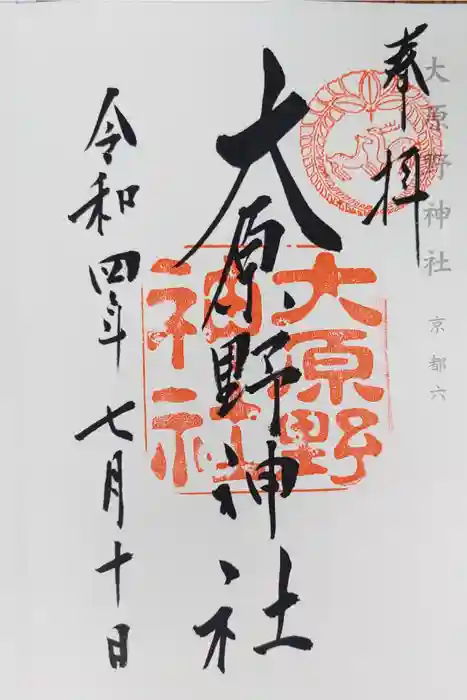 奉拝
大原野神社
京都六
大原野神社
大原野
神社
令和四年七月十日